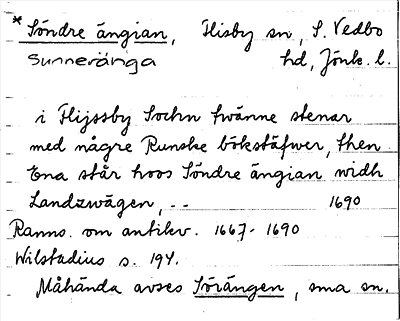 * Söndre ängian, Flisby sn, S. Vedbo
Sunneränga hd, Jönk. l.
i Flijssby Sochn twänne stenar
med någre Runske bökstäfwer, then
Ena står hoos Söndre ängian widh
Landzwägen, -- 1690
Ranns. om antikv. 1667-1690
Wilstadius s. 194.
Måhända avses Sörängen, sma sn.